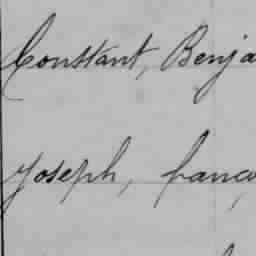 Constant, Benja
Joseph, franço